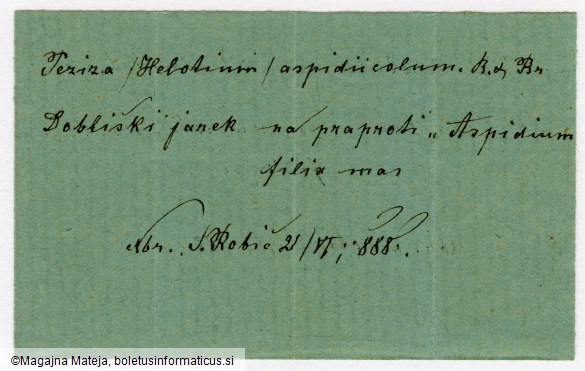 Peziza /Helotium/ aspidiicolum. B. & Br
Dobliški janek na praproti „ Aspidium
filix mas
Nbr. S. Robič 21/VI; 888.
©Magajna Mateja, boletusinformaticus.si